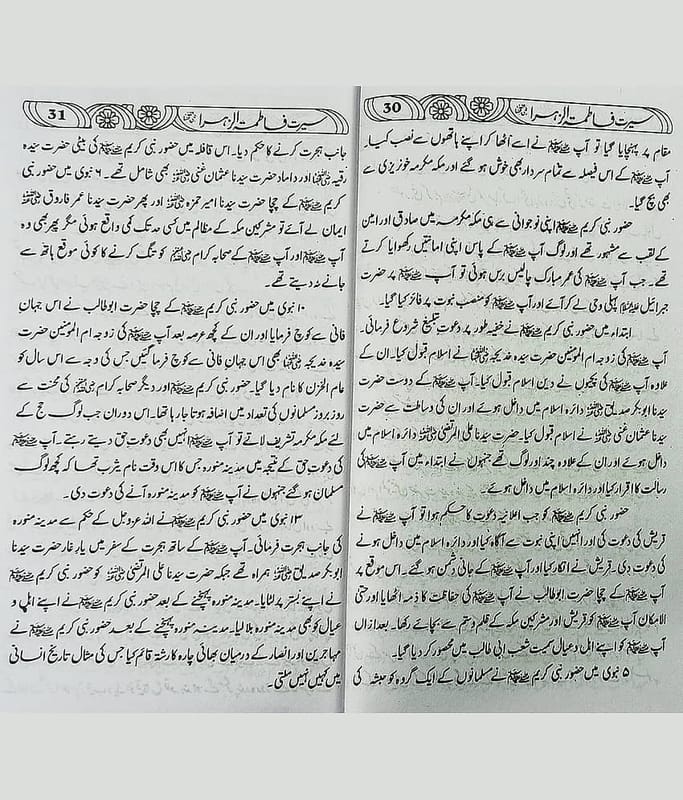 سیرت فاطمۃ الزہرا رضی اللہ عنہا
30
مقام پر پہنچایا گیا تو آپ ﷺ نے اسے اٹھا کر اپنے ہاتھوں سے نصب کیا۔
آپ ﷺ کے اس فیصلہ سے تمام سردار بھی خوش ہو گئے اور مکہ مکرمہ خونریزی سے
بھی بچ گیا۔
حضور نبی کریم ﷺ اپنی نوجوانی سے ہی مکہ مکرمہ میں صادق اور امین
کے لقب سے مشہور تھے اور لوگ آپ ﷺ کے پاس اپنی امانتیں رکھوایا کرتے
تھے۔ جب آپ ﷺ کی عمر مبارک چالیس برس ہوئی تو آپ ﷺ پر حضرت
جبرائیل علیہ السلام پہلی وحی لے کر آئے اور آپ ﷺ کو منصب نبوت پر فائز کیا گیا۔
ابتداء میں حضور نبی کریم ﷺ نے خفیہ طور پر دعوت تبلیغ شروع فرمائی۔
آپ ﷺ کی زوجہ ام المومنین حضرت سیدہ خدیجہ رضی اللہ عنہا نے اسلام قبول کیا۔ ان کے
علاوہ آپ ﷺ کی بچیوں نے دین اسلام قبول کیا۔ آپ ﷺ کے دوست حضرت
سیدنا ابوبکر صدیق رضی اللہ عنہ دائرہ اسلام میں داخل ہوئے اور ان کی وساطت سے حضرت
سیدنا عثمان غنی رضی اللہ عنہ نے اسلام قبول کیا۔ حضرت سیدنا علی المرتضیٰ رضی اللہ عنہ دائرہ اسلام میں
داخل ہوئے اور ان کے علاوہ چند اور لوگ تھے جنہوں نے ابتداء میں آپ ﷺ کی
رسالت کا اقرار کیا اور دائرہ اسلام میں داخل ہوئے۔
حضور نبی کریم ﷺ کو جب اعلانیہ دعوت کا حکم ہوا تو آپ ﷺ نے
قریش کی دعوت کی اور انہیں اپنی نبوت سے آگاہ کیا اور دائرہ اسلام میں داخل ہونے
کی دعوت دی۔ قریش نے انکار کیا اور آپ ﷺ کے جانی دشمن ہو گئے۔ اس موقع پر
آپ ﷺ کے چچا حضرت ابوطالب نے آپ ﷺ کی حفاظت کا ذمہ اٹھایا اور حتی
الامکان آپ ﷺ کو قریش اور مشرکین مکہ کے ظلم و ستم سے بچائے رکھا۔ بعد ازاں
آپ ﷺ کو اپنے اہل و عیال سمیت شعب ابی طالب میں محصور کر دیا گیا۔
۵ نبوی میں حضور نبی کریم ﷺ نے مسلمانوں کے ایک گروہ کو حبشہ کی
سیرت فاطمۃ الزہرا رضی اللہ عنہا
31
جانب ہجرت کرنے کا حکم دیا۔ اس قافلہ میں حضور نبی کریم ﷺ کی بیٹی حضرت سیدہ
رقیہ رضی اللہ عنہا اور داماد حضرت سیدنا عثمان غنی رضی اللہ عنہ بھی شامل تھے۔ ۶ نبوی میں حضور نبی
کریم ﷺ کے چچا حضرت سیدنا امیر حمزہ رضی اللہ عنہ اور پھر حضرت سیدنا عمر فاروق رضی اللہ عنہ
ایمان لے آئے تو مشرکین مکہ کے مظالم میں کسی حد تک کمی واقع ہوئی مگر پھر بھی وہ
آپ ﷺ اور آپ ﷺ کے صحابہ کرام رضی اللہ عنہم کو تنگ کرنے کا کوئی موقع ہاتھ سے
جانے نہ دیتے تھے۔
۱۰ نبوی میں حضور نبی کریم ﷺ کے چچا حضرت ابوطالب نے اس جہانِ
فانی سے کوچ فرمایا اور ان کے کچھ عرصہ بعد آپ ﷺ کی زوجہ ام المومنین حضرت
سیدہ خدیجہ رضی اللہ عنہا بھی اس جہانِ فانی سے کوچ فرما گئیں جس کی وجہ سے اس سال کو
عام الحزن کا نام دیا گیا۔ حضور نبی کریم ﷺ اور دیگر صحابہ کرام رضی اللہ عنہم کی محنت سے
روز بروز مسلمانوں کی تعداد میں اضافہ ہوتا جا رہا تھا۔ اس دوران جب لوگ حج کے
لئے مکہ مکرمہ تشریف لاتے تو آپ ﷺ انہیں بھی دعوت حق دیتے رہتے۔ آپ ﷺ
کی دعوت حق کے نتیجہ میں مدینہ منورہ جس کا اس وقت نام یثرب تھا کہ کچھ لوگ
مسلمان ہو گئے جنہوں نے آپ ﷺ کو مدینہ منورہ آنے کی دعوت دی۔
۱۳ نبوی میں حضور نبی کریم ﷺ نے اللہ عزوجل کے حکم سے مدینہ منورہ
کی جانب ہجرت فرمائی۔ آپ ﷺ کے ساتھ ہجرت کے سفر میں یارِ غار حضرت سیدنا
ابوبکر صدیق رضی اللہ عنہ ہمراہ تھے جبکہ حضرت سیدنا علی المرتضیٰ رضی اللہ عنہ کو حضور نبی کریم ﷺ
نے اپنے بستر پر لٹایا۔ مدینہ منورہ پہنچنے کے بعد حضور نبی کریم ﷺ نے اپنے اہل و
عیال کو بھی مدینہ منورہ بلا لیا۔ مدینہ منورہ پہنچنے کے بعد حضور نبی کریم ﷺ نے
مہاجرین اور انصار کے درمیان بھائی چارہ کا رشتہ قائم کیا جس کی مثال تاریخ انسانی
میں کہیں نہیں ملتی۔